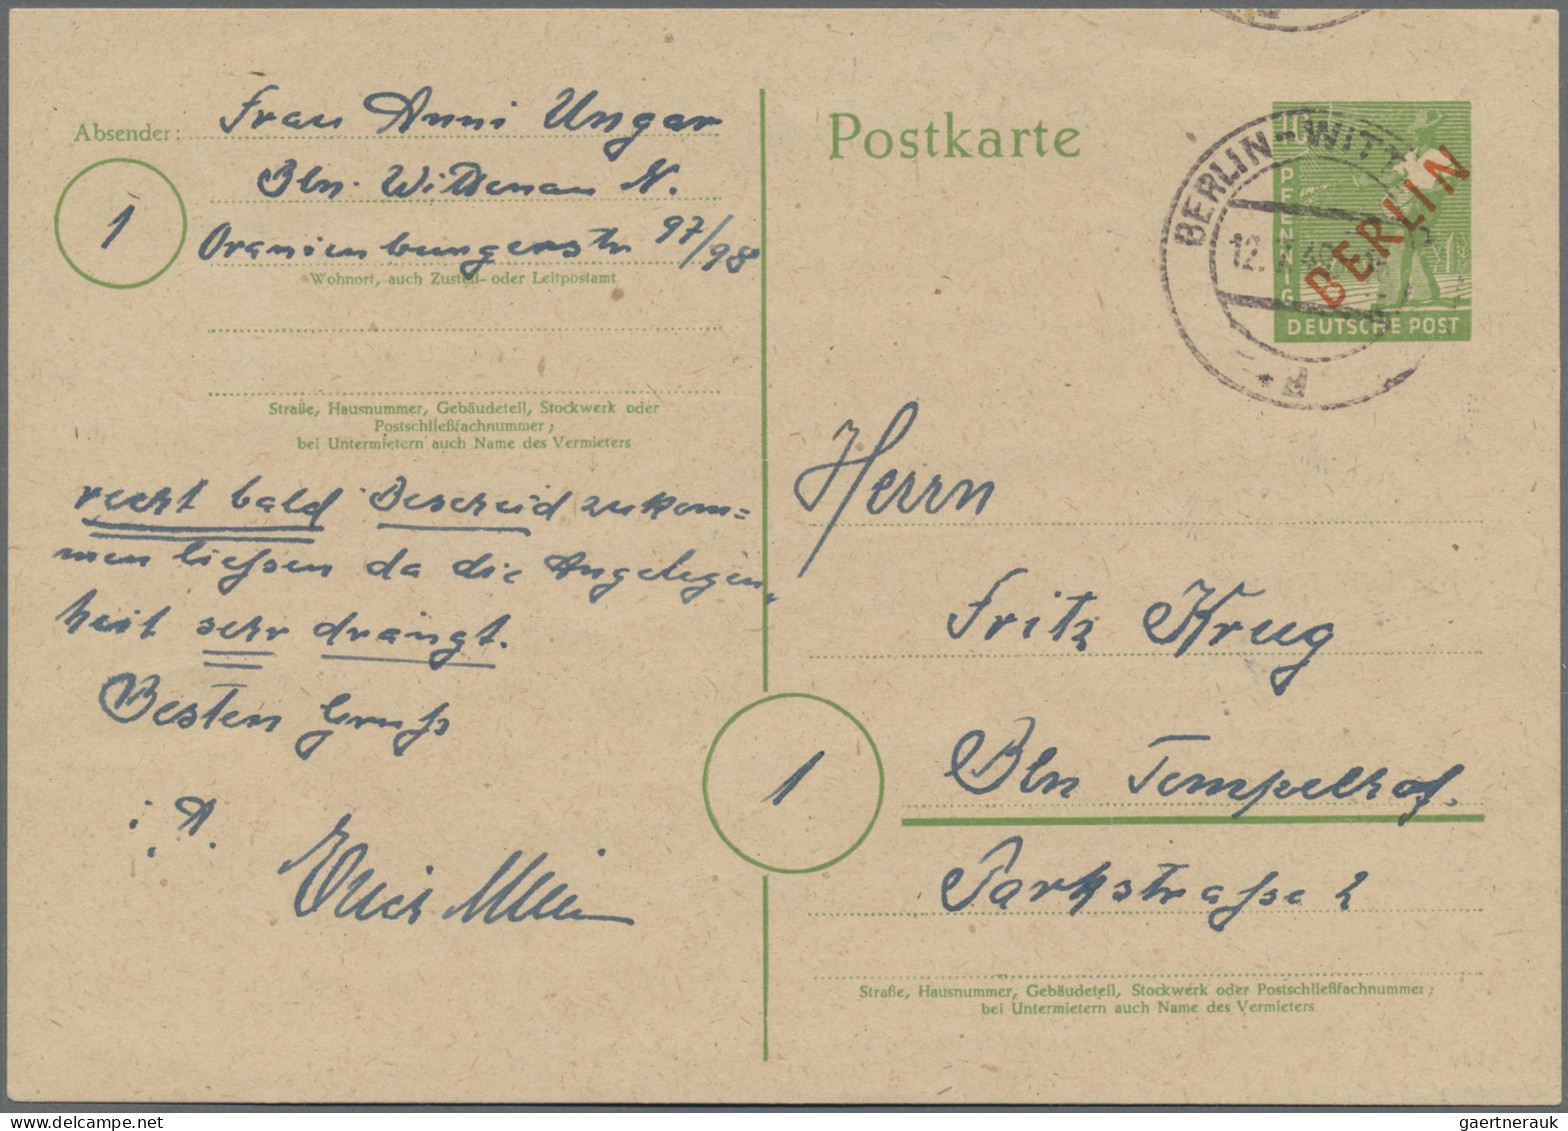 Absender: Frau Anni Ungar
Bln. Wittenau N.
1
Oranienburgerstr 97/98
Wohnort, auch Zustell- oder Leitpostamt
Straße, Hausnummer, Gebäudeteil, Stockwerk oder
Postschließfachnummer;
bei Untermietern auch Name des Vermieters
recht bald Bescheid zukom=
men liessen da die Angelegen„
heit sehr drängt.
Besten Gruß
i. A.
Postkarte
10
PFENNIG
DEUTSCHE POST
BERLIN
BERLIN-WITT
12.
d
Herrn
Fritz Krug
1
Bln Tempelhof.
Parkstrasse 2
Straße, Hausnummer, Gebäudeteil, Stockwerk oder Postschließfachnummer;
bei Untermietern auch Name des Vermieters
gaertnerauk @ delcampe.net